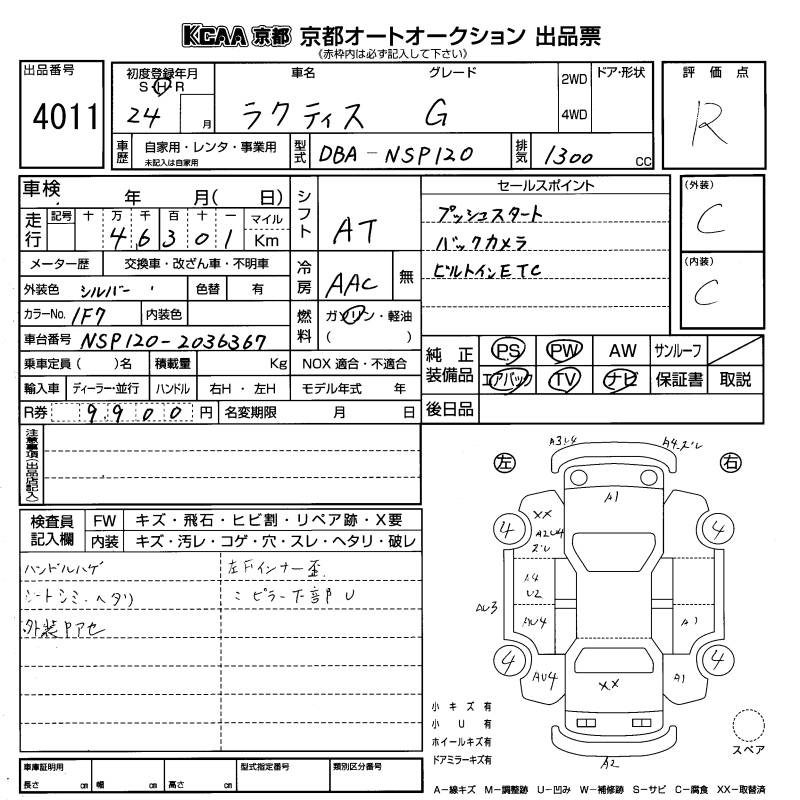 KCAA 京都 京都オートオークション 出品票
《赤枠内は必ず記入して下さい》
出品番号
4011
初度登録年月
S・H・R
24 月
車名
ラクティス
グレード
G
2WD
4WD
ドア・形状
車歴
自家用・レンタ・事業用
未記入は自家用
型式
DBA-NSP120
排気
1300 cc
評価点
R
車検 年 月( 日)
走行
記号 十 万 千 百 十 一 マイル
4 6 3 0 1 Km
メーター歴 交換車・改ざん車・不明車
外装色 シルバー 色替 有
カラーNo. 1F7 内装色
車台番号 NSP120-2036367
乗車定員( )名 積載量 Kg
輸入車 ディーラー・並行 ハンドル 右H・左H
R券 9900 円 名変期限 月 日
シフト AT
冷房 AAC 無
燃料 ガソリン・軽油
( )
NOX 適合・不適合
モデル年式 年
セールスポイント
プッシュスタート
バックカメラ
ビルトインETC
(外装)
C
(内装)
C
純正装備品
PS PW AW サンルーフ
エアバック TV ナビ 保証書 取説
後日品
注意事項(出品店記入)
検査員記入欄
FW キズ・飛石・ヒビ割・リペア跡・X要
内装 キズ・汚レ・コゲ・穴・スレ・ヘタリ・破レ
ハンドルハゲ
シートシミ、ヘタリ
外装色アセ
左Fインナー歪
ミピラー下部U
左
右
A3U4
A4.ズレ
A1
XX
A2U4
ズレ
4
4
U2
AU3
AU4
A1
4
4
AU4
XX
A1
A2
小キズ有
小U有
ホイールキズ有
ドアミラーキズ有
スペア
車庫証明用
長さ cm 幅 cm 高さ cm
型式指定番号
類別区分番号
A-線キズ M-調整跡 U-凹み W-補修跡 S-サビ C-腐食 XX-取替済